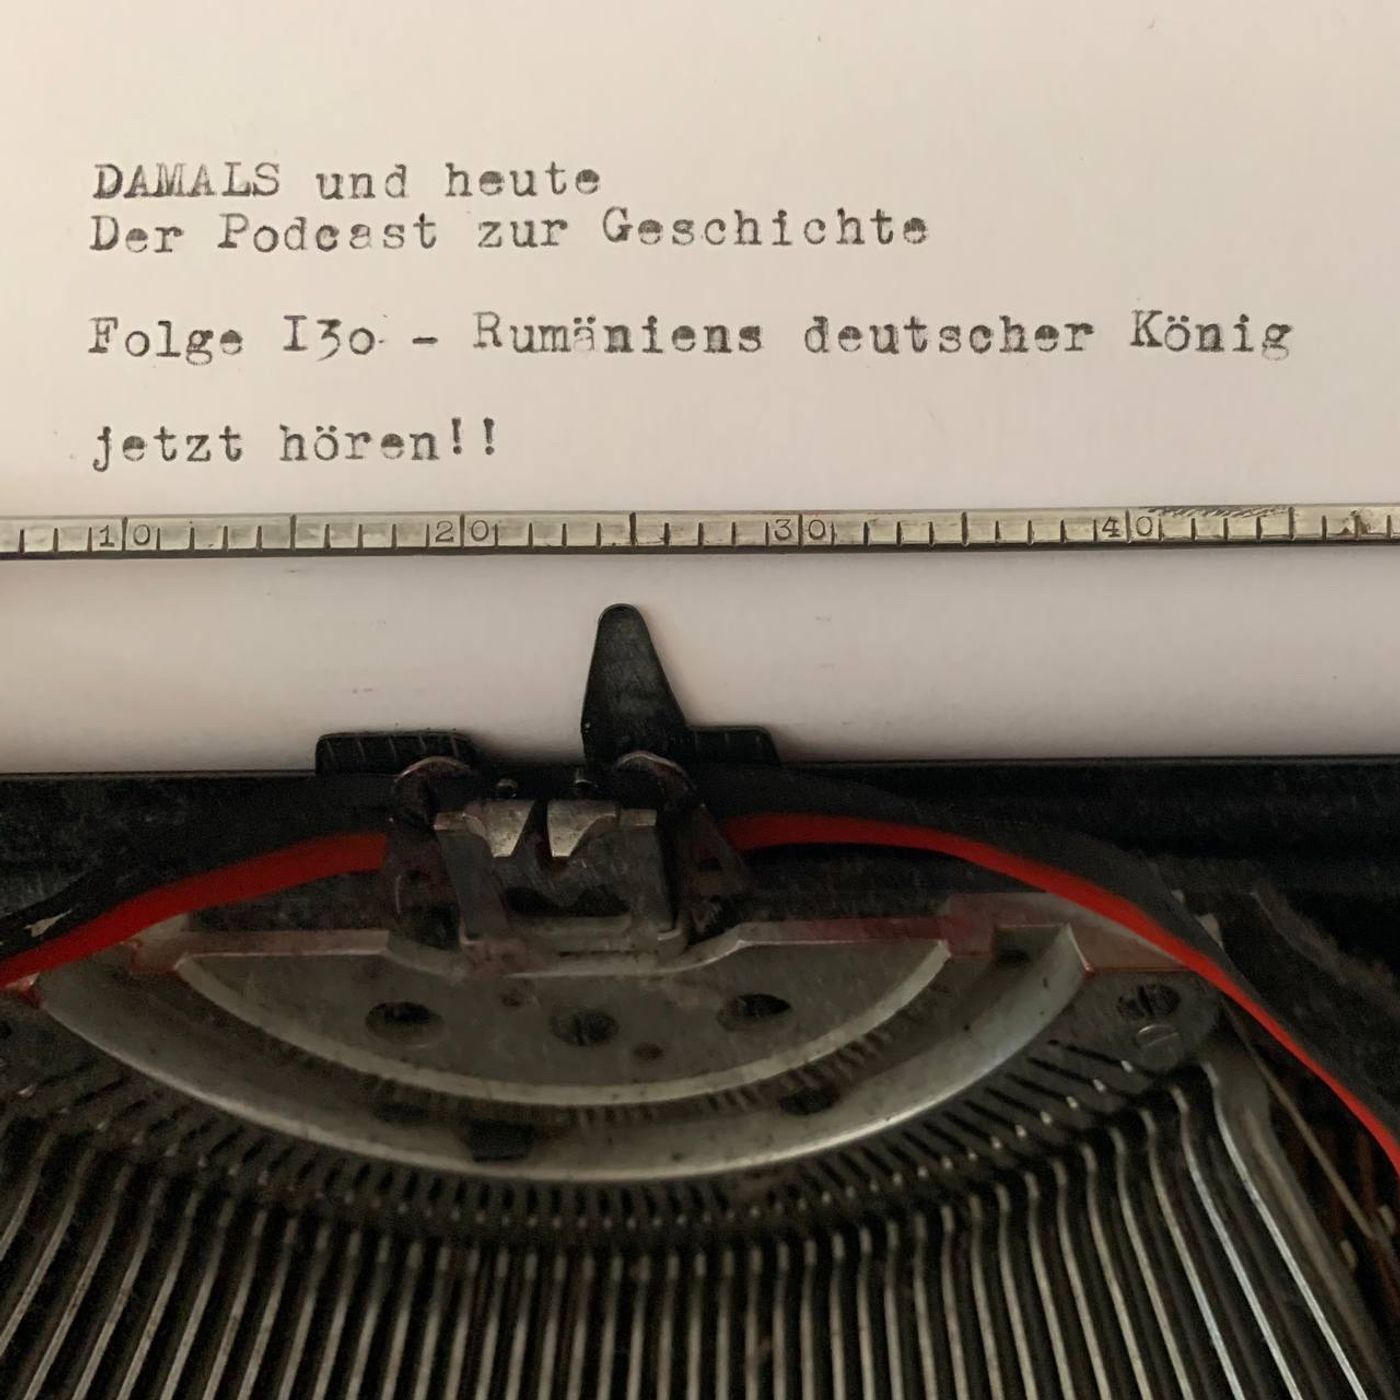 DAMALS und heute
Der Podcast zur Geschichte
Folge I30 - Rumäniens deutscher König
jetzt hören!!
10 20 30 40